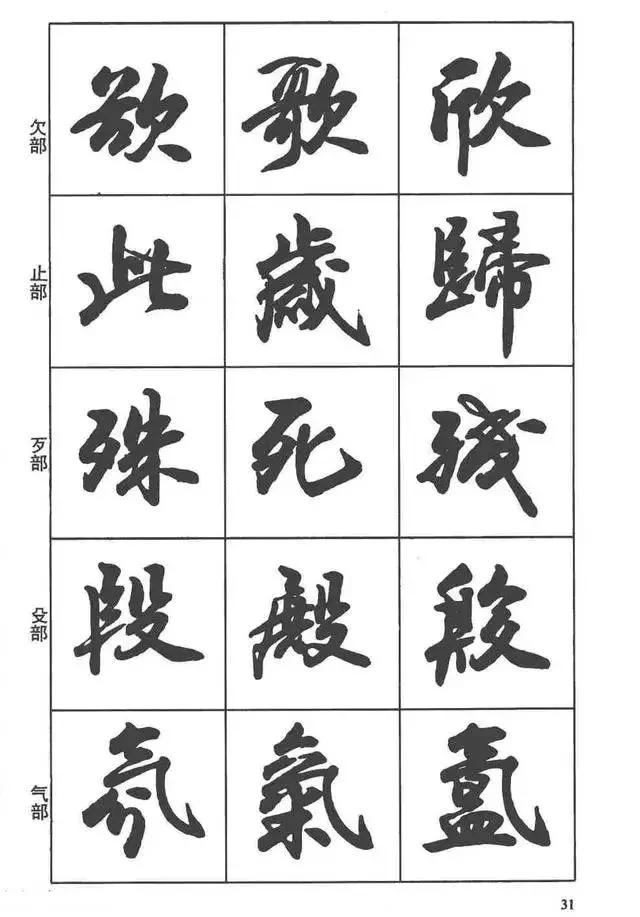 欠部 欲 歌 欣
止部 此 歲 歸
歹部 殊 死 残
殳部 段 殿
气部 氛 氣
31